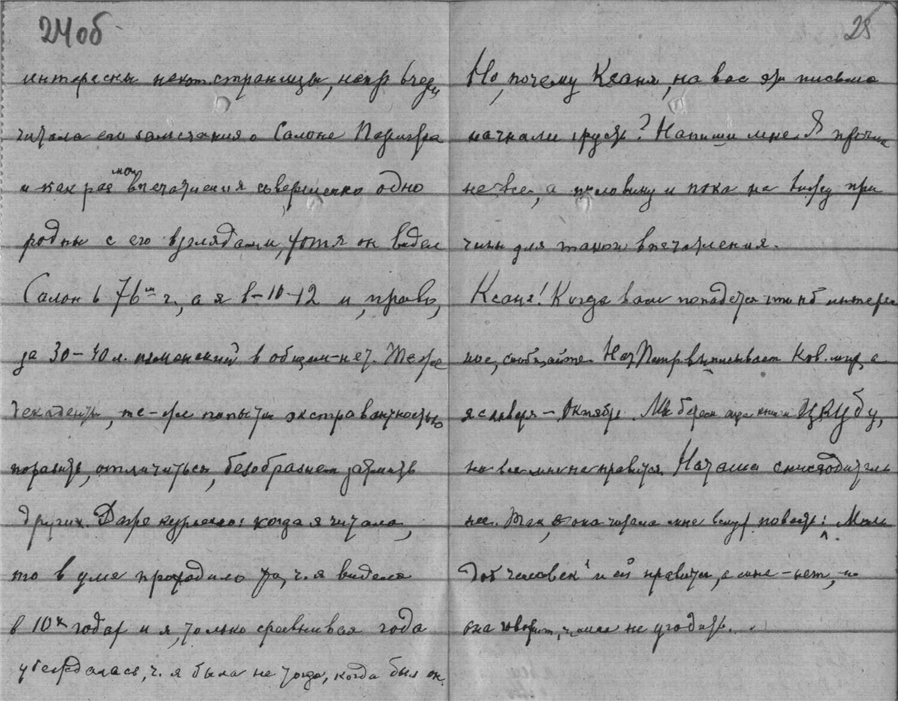 24об
интересны некот. страницы, напр. вчера
читала его замечания о Салоне Парижа
и как раз мои впечатления совершенно одно
родны с его взглядами, хотя он видел
Салон в 76м г., а я в-10-12 и, право,
за 30-40 л. изменений в общем-нет. Те же
декаденты, те-же попытки экстравагантностью
поразить, отличиться, безобразием затмить
других. Даже курьезно: когда я читала,
то в уме проходило то, ч. я видела
в 10х годах и я, только сравнивая года
убеждалась, ч. я была не тогда, когда был он.
25
Но, почему Ксаня, на вас эти письма
нагнали грусть? Напиши мне. Я прочла
не все, а половину и пока не вижу при
чины для такого впечатления.
Ксаня! Когда вам попадется что нб интерес
ное, сообщайте. Нат. Петр. выписывает Нов. мир, а
я словарь - Октябрь. Мы берем еще книги ЦКУБу,
но все мне не нравится. Наташа снисходитель
нее. Так, она читала мне вслух повесть: Мой
человек и ей нравится, а мне-нет, и
она говорит, ч. мне не угодить.